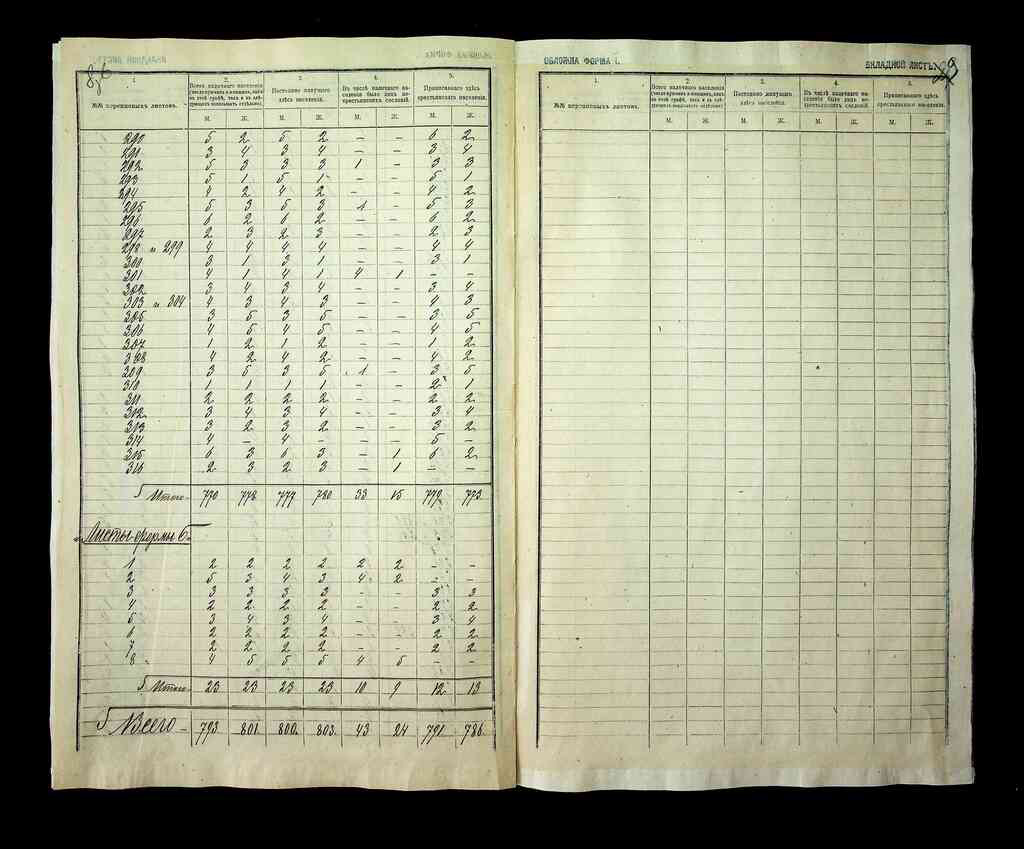 1. 2. 3. 4. 5.
№№ переписныхъ листовъ. Всего наличнаго населенія Постоянно живущаго здѣсь населенія. Въ числѣ наличнаго населенія было лицъ не-крестьянскихъ сословій. Приписаннаго здѣсь крестьянскаго населенія.
М. Ж. М. Ж. М. Ж. М. Ж.
290 5 2 5 2 — — 6 2
291 3 4 3 4 — — 3 4
292 5 3 3 3 1 — 3 3
293 5 1 5 1 — — 5 1
294 4 2 4 2 — — 4 2
295 5 3 5 3 1 — 5 3
296 6 2 6 2 — — 6 2
297 2 3 2 3 — — 2 3
298 и 299 4 4 4 4 — — 4 4
300 3 1 3 1 — — 3 1
301 4 1 4 1 4 1 — —
302 3 4 3 4 — — 3 4
303 и 304 4 3 4 3 — — 4 3
305 3 5 3 5 — — 3 5
306 4 5 4 5 — — 4 5
307 1 2 1 2 — — 1 2
308 4 2 4 2 — — 4 2
309 3 5 3 5 1 — 3 5
310 1 1 1 1 — — 2 1
311 2 2 2 2 — — 2 2
312 3 4 3 4 — — 3 4
313 3 2 3 2 — — 3 2
314 4 — 4 — — — 5 —
315 6 3 6 3 — 1 6 2
316 2 3 2 3 — 1 — —
Итого 770 778 777 780 33 15 779 773
„Листы формы Б"
1 2 2 2 2 2 2 — —
2 5 3 4 3 4 2 — —
3 3 3 3 3 — — 3 3
4 2 2 2 2 — — 2 2
5 3 4 3 4 — — 3 4
6 2 2 2 2 — — 2 2
7 2 2 2 2 — — 2 2
8 4 5 5 5 4 5 — —
Итого 23 23 23 23 10 9 12 13
Всего 793 801 800 803 43 24 791 786
ОБЛОЖКА ФОРМА 1. ВКЛАДНОЙ ЛИСТЪ
1. 2. 3. 4. 5.
№№ переписныхъ листовъ. Всего наличнаго населенія Постоянно живущаго здѣсь населенія. Въ числѣ наличнаго населенія было лицъ не-крестьянскихъ сословій. Приписаннаго здѣсь крестьянскаго населенія.
М. Ж. М. Ж. М. Ж. М. Ж.